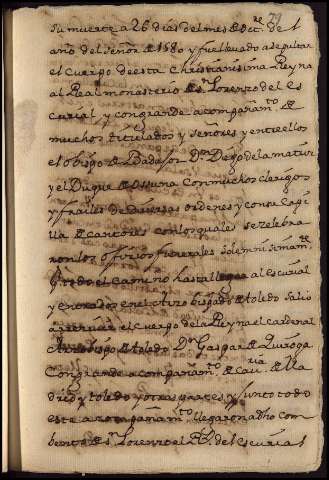 29
su muerte a 26 dias del mes de oct.re del
año del señor de 1580 y fue llevado a sepultar
el cuerpo de esta christianisima Reyna
al Real monasterio de s.n Lorenzo del es
curial, y con grande acompañam.to de
muchos titulados y señores y entre ellos
el obispo de Badajos D.n Diego de la matur
y el Duque de ossuna con muchos clerigos
y frailes de diversas ordenes y con sa capi
lla de cantores con los quales se zelebra
ron los oficios funerales solemnisimam.te
todo el camino hasta llegar al escurial
y entrados en el Arzobispado de toledo salio
a recevir el cuerpo de la Reyna el cardenal
Arzobispo de toledo D.n Gaspar de Quiroga
Con grande acompañam.to de cav.ria de Ma
drid y toledo y otras partes, y junto todo
este acompañam.to llegaron a dho com
bento de s.n Lorenzo el R.l del escurial